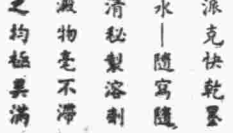 派克快乾墨
水—隨寫隨
清秘製溶劑
澱物毫不滯
之均極美滿